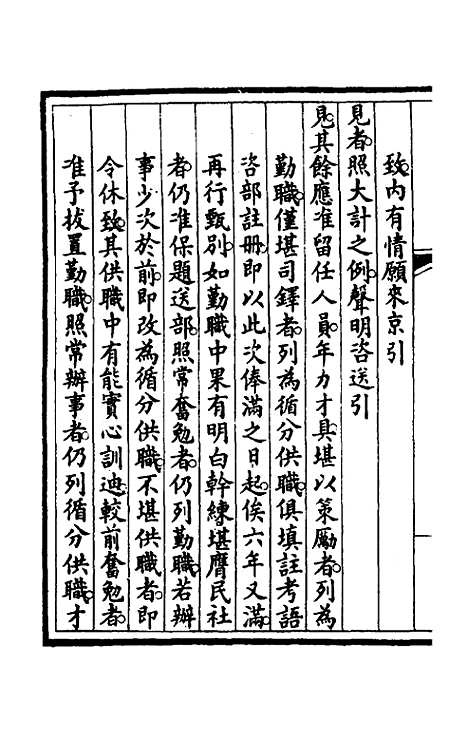 致内有情願來京引
見者照大計之例聲明咨送引
見其餘應准留任人員年力才具堪以策勵者列為
勤職僅堪司鐸者列為循分供職俱填註考語
咨部註冊即以此次俸滿之日起俟六年又滿
再行甄別如勤職中果有明白幹練堪膺民社
者仍准保題送部照常奮勉者仍列勤職若辦
事少次於前即改為循分供職不堪供職者即
令休致其供職中有能實心訓迪較前奮勉者
准予拔置勤職照常辦事者仍列循分供職才